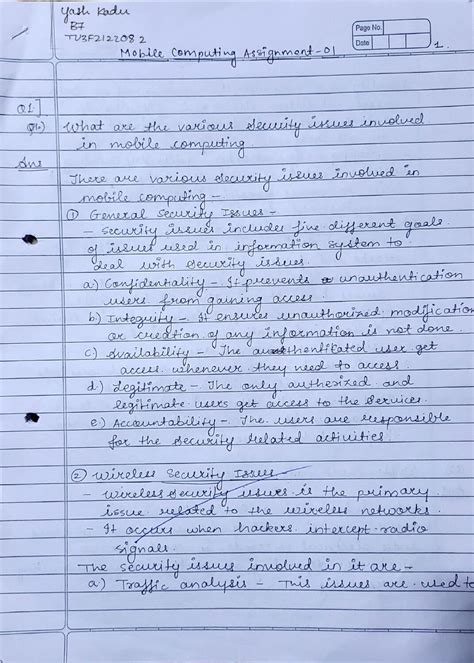 Yash Kadu
B7
TU3F2122082
Page No.
Date
1.
Mobile Computing Assignment-01
Q1]
Q1a)
What are the various security issues involved
in mobile computing
Ans
There are various security issues involved in
mobile computing -
① General Security Issues -
- security issues includes five different goals
of issues used in information system to
deal with security issues.
a) Confidentiality - it prevents unauthentication
users from gaining access.
b) Integrity - It ensures unauthorized modification
or creation of any information is not done.
c) Availability - The authentitated user get
access whenever they need to access.
d) Legitimate - The only authorized and
legitimate users get access to the services.
e) Accountability - The users are responsible
for the security related activities.
② Wireless Security Issues
- wireless security issues is the primary
issue related to the wireless networks.
- It occurs when hackers intercept radio
signals.
The security issues involved in it are -
a) Traffic analysis - This issues are used to